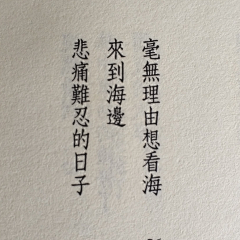 毫無理由想看海
來到海邊
悲痛難忍的日子